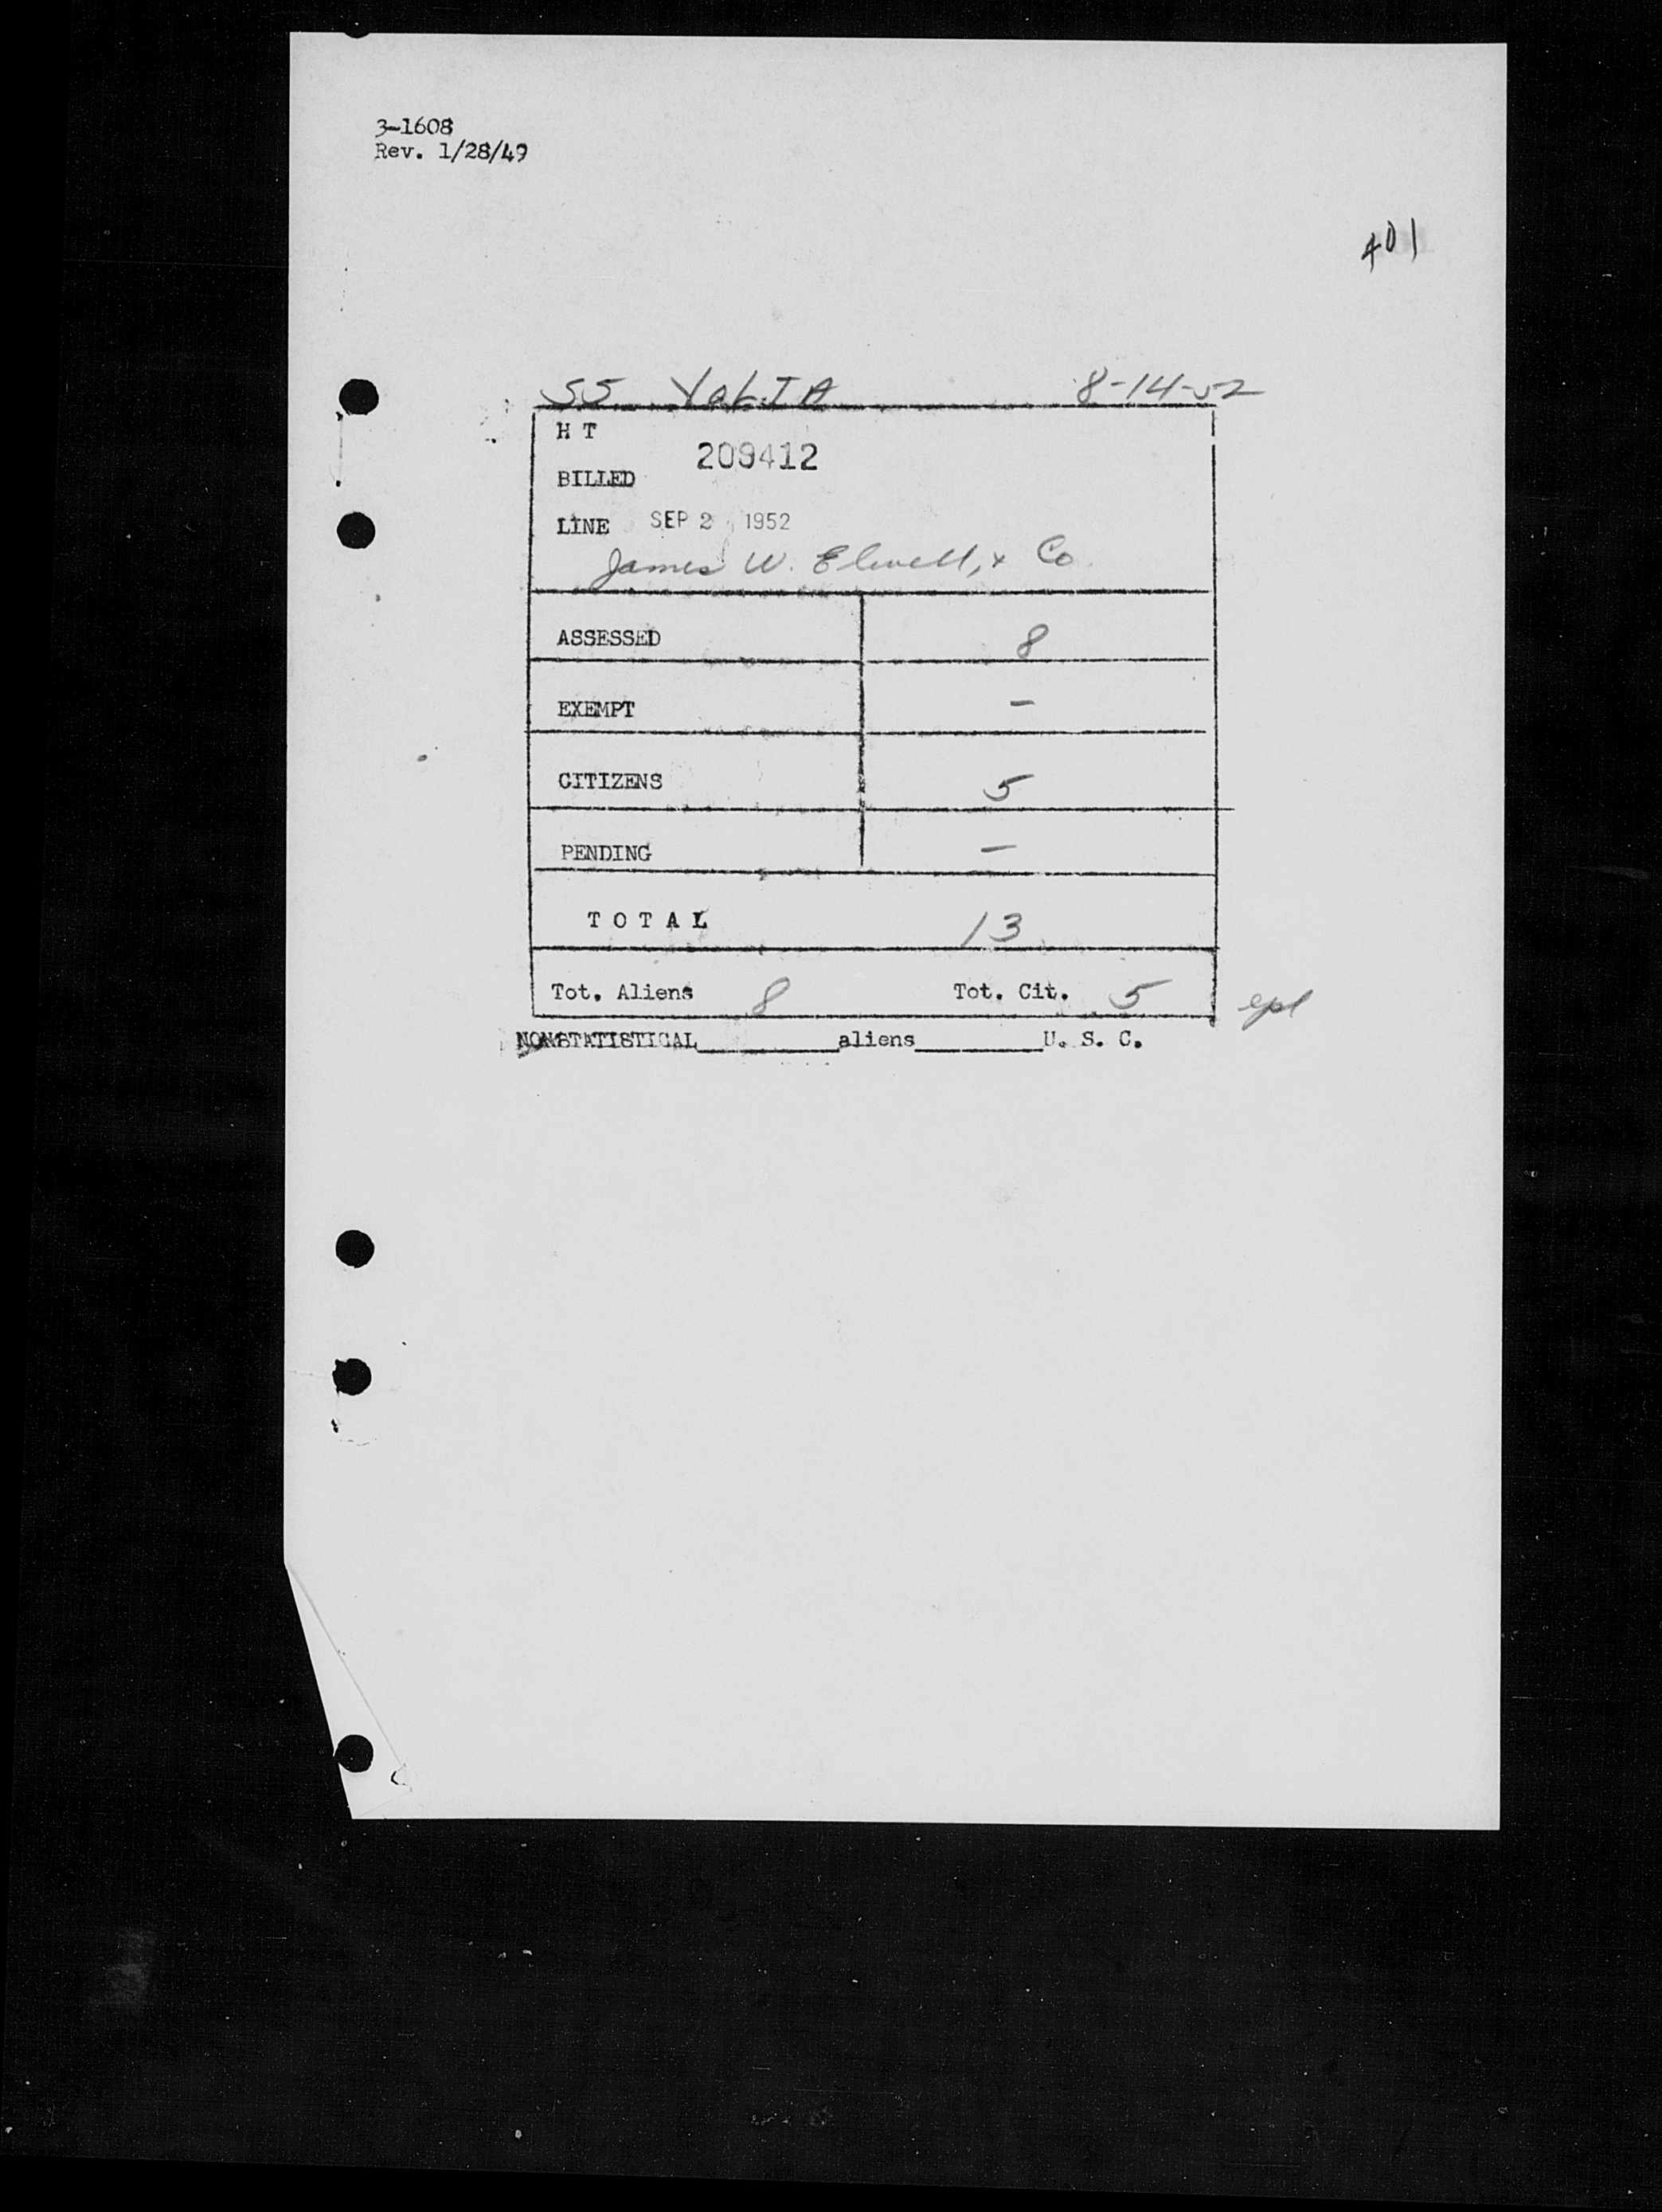 3-1608
Rev. 1/28/49
401
SS YaLTA 8-14-52
H T
209412
BILLED
LINE SEP 2 1952
James W. Elwell, & Co.
ASSESSED 8
EXEMPT -
CITIZENS 5
PENDING -
T O T A L 13
Tot. Aliens 8 Tot. Cit. 5
NONSTATISTICAL__________aliens__________U. S. C.